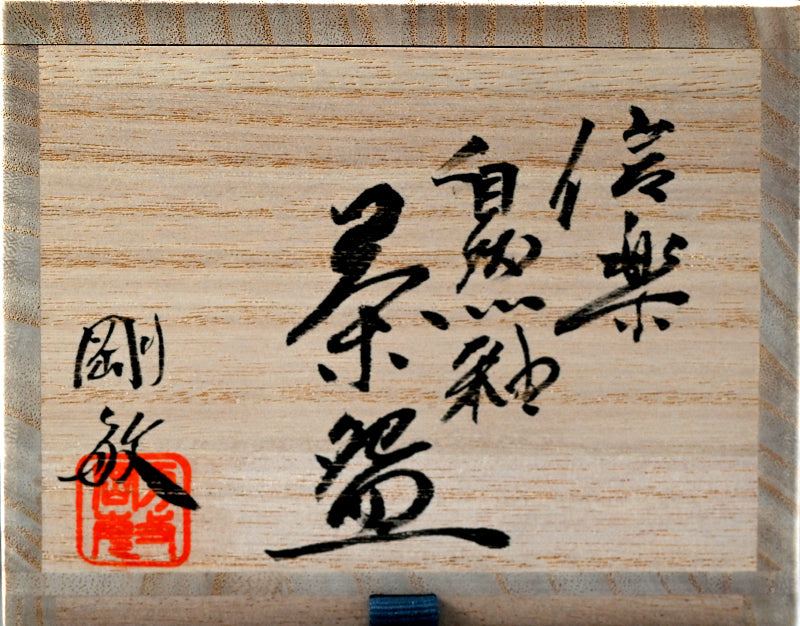 信楽
自然釉
茶盌
剛敏